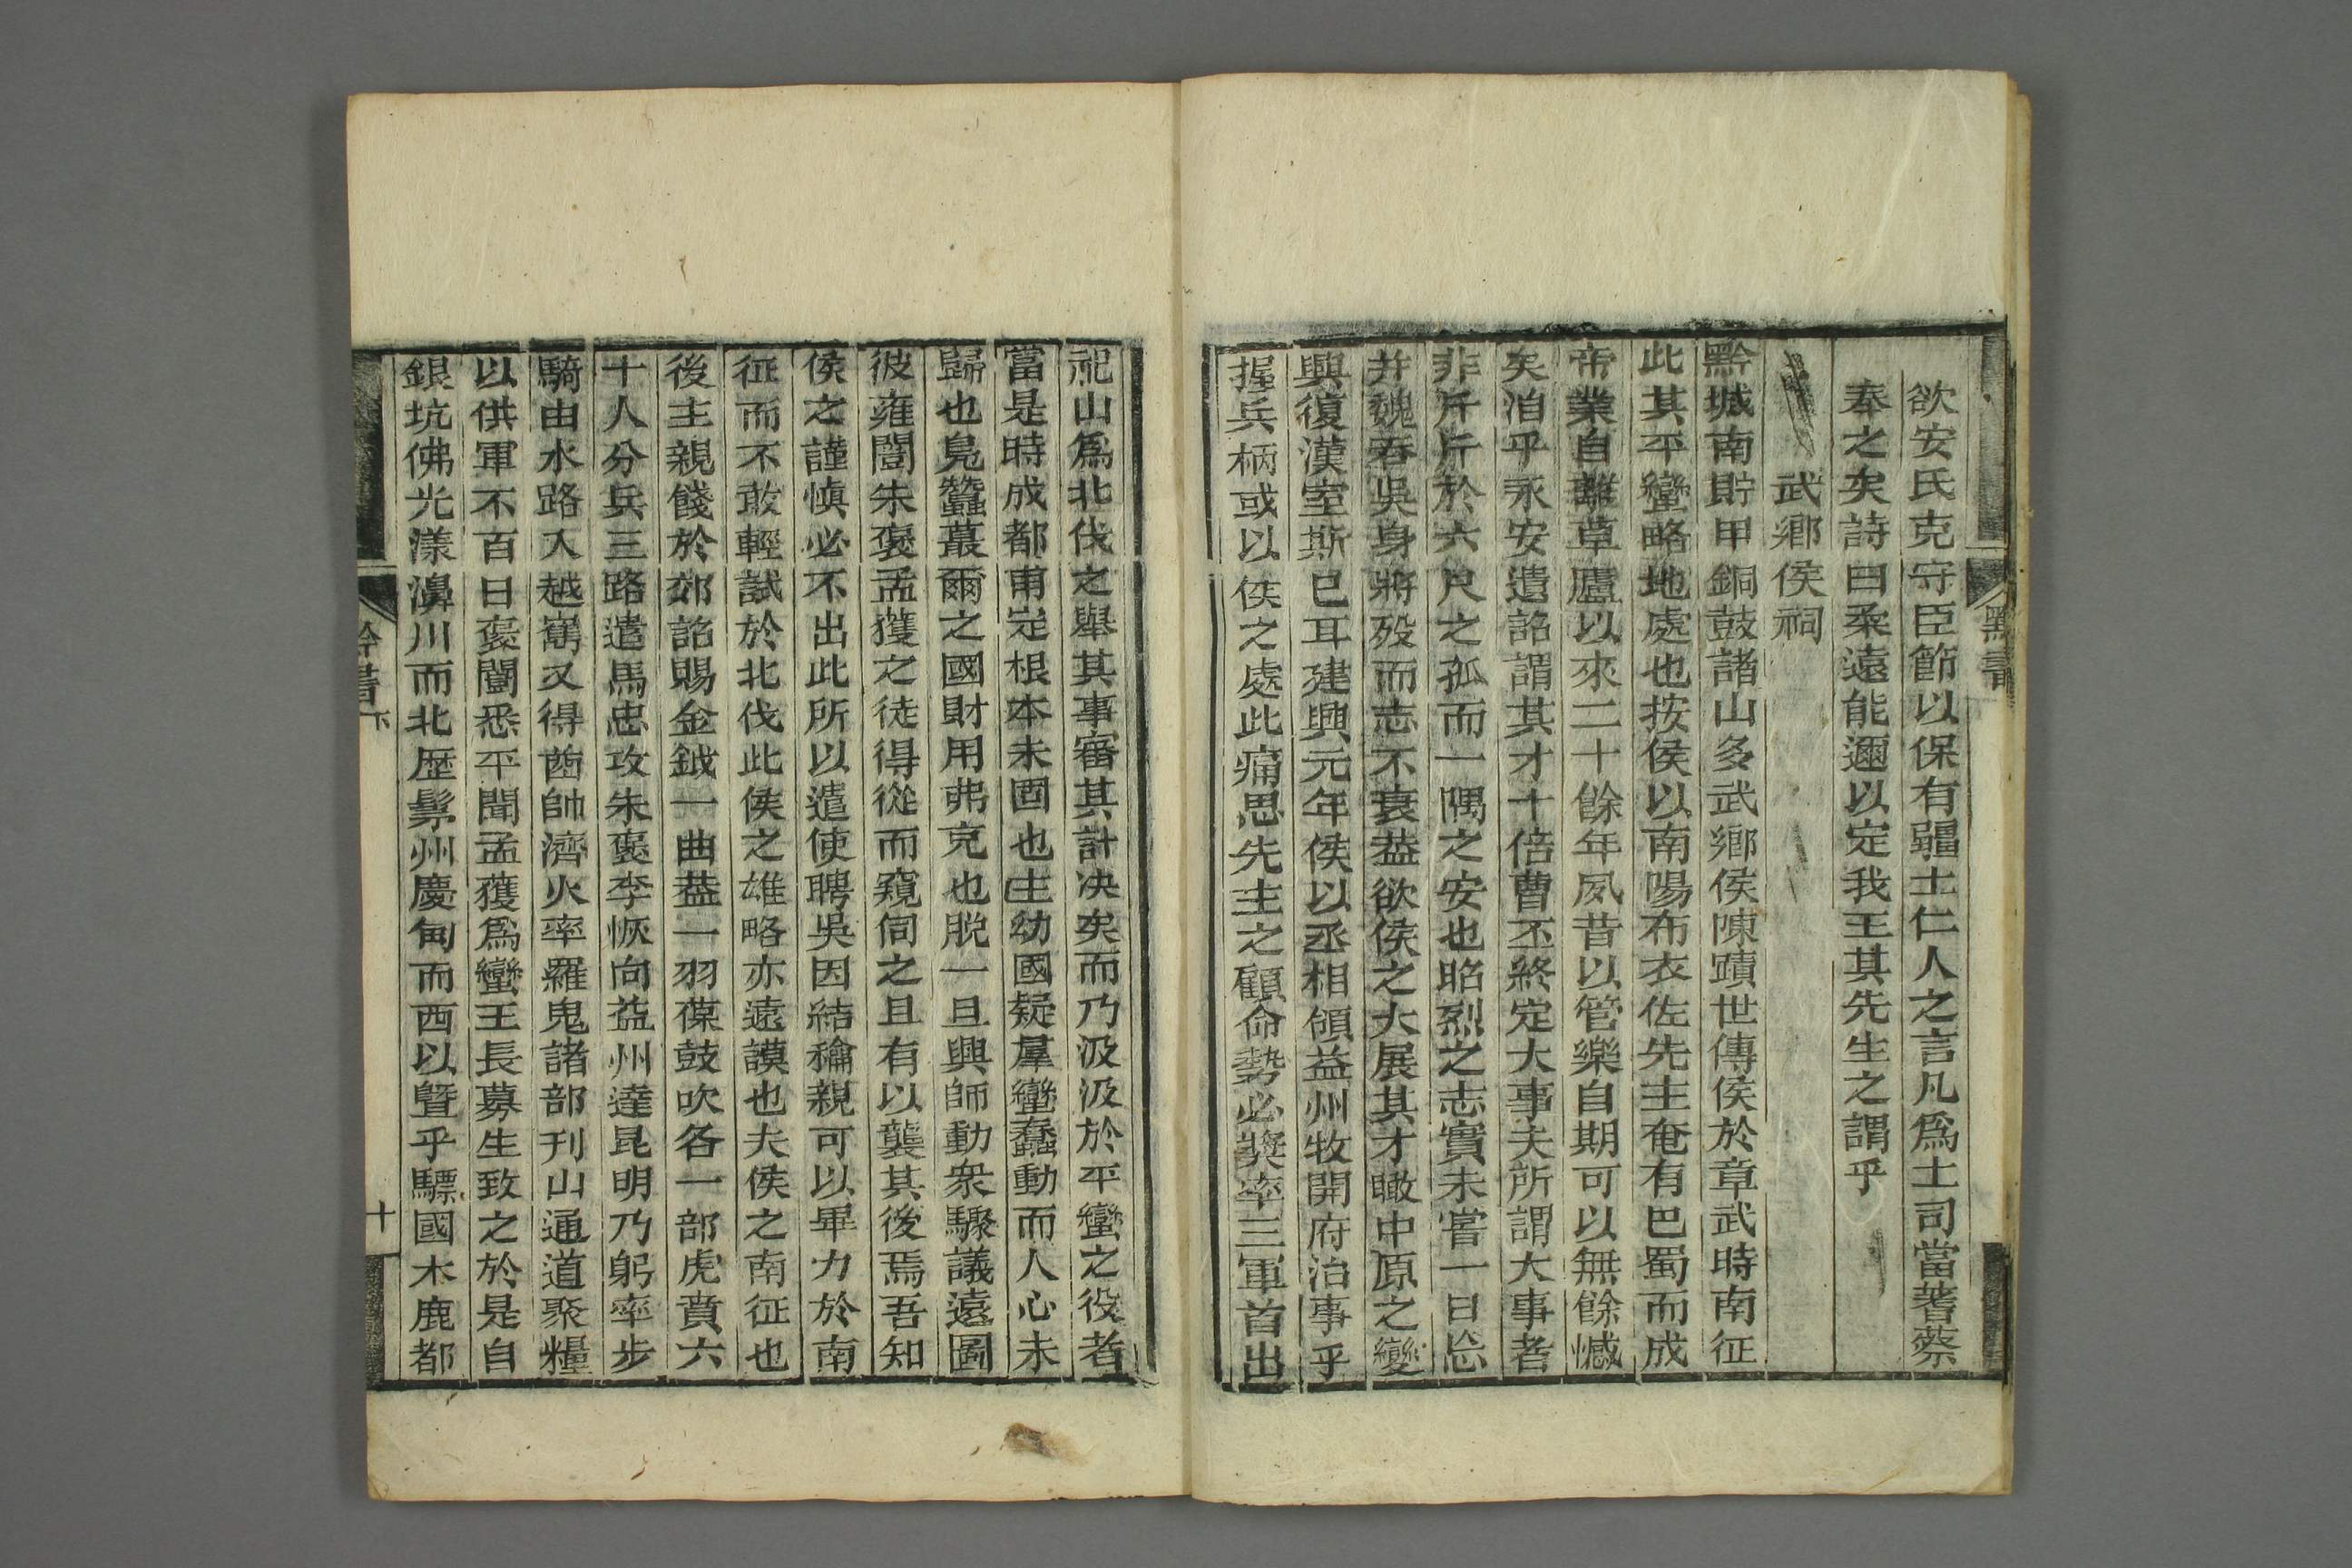 黔書
欲安氏克守臣節以保有疆土仁人之言凡爲土司當蓍蔡
奉之矣詩曰柔遠能邇以定我王其先生之謂乎
武鄉侯祠
黔城南貯甲銅鼓諸山多武鄉侯陳蹟世傳侯於章武時南征
此其平蠻略地處也按侯以南陽布衣佐先主奄有巴蜀而成
帝業自離草廬以來二十餘年夙昔以管樂自期可以無餘憾
矣洎乎永安遺詔謂其才十倍曹丕終定大事夫所謂大事者
非斤斤於六尺之孤而一隅之安也昭烈之志實未嘗一日忘
并魏吞吳身將歿而志不衰葢欲侯之大展其才瞰中原之變
興復漢室斯已耳建興元年侯以丞相領益州牧開府治事乎
握兵柄或以侯之處此痛思先主之顧命勢必奬率三軍首出
祀山爲北伐之舉其事審其計决矣而乃汲汲於平蠻之役者
當是時成都甫定根本未固也主幼國疑羣蠻蠢動而人心未
歸也鳧蠶蕞爾之國財用弗克也脱一旦興師動衆驟議遠圖
彼雍闓朱褒孟獲之徒得從而窺伺之且有以襲其後焉吾知
侯之謹愼必不出此所以遣使聘吳因結龢親可以畢力於南
征而不敢輕試於北伐此侯之雄略亦遠謨也夫侯之南征也
後主親餞於郊詔賜金鉞一曲葢一羽葆鼓吹各一部虎賁六
十人分兵三路遣馬忠攻朱褒李恢向益州達昆明乃躬率步
騎由水路入越嶲又得酋帥濟火率羅鬼諸部刋山通道聚糧
以供軍不百日褒闓悉平聞孟獲爲蠻王長募生致之於是自
銀坑佛光漾濞川而北歷髳州慶甸而西以曁乎驃國木鹿都
黔書下
十